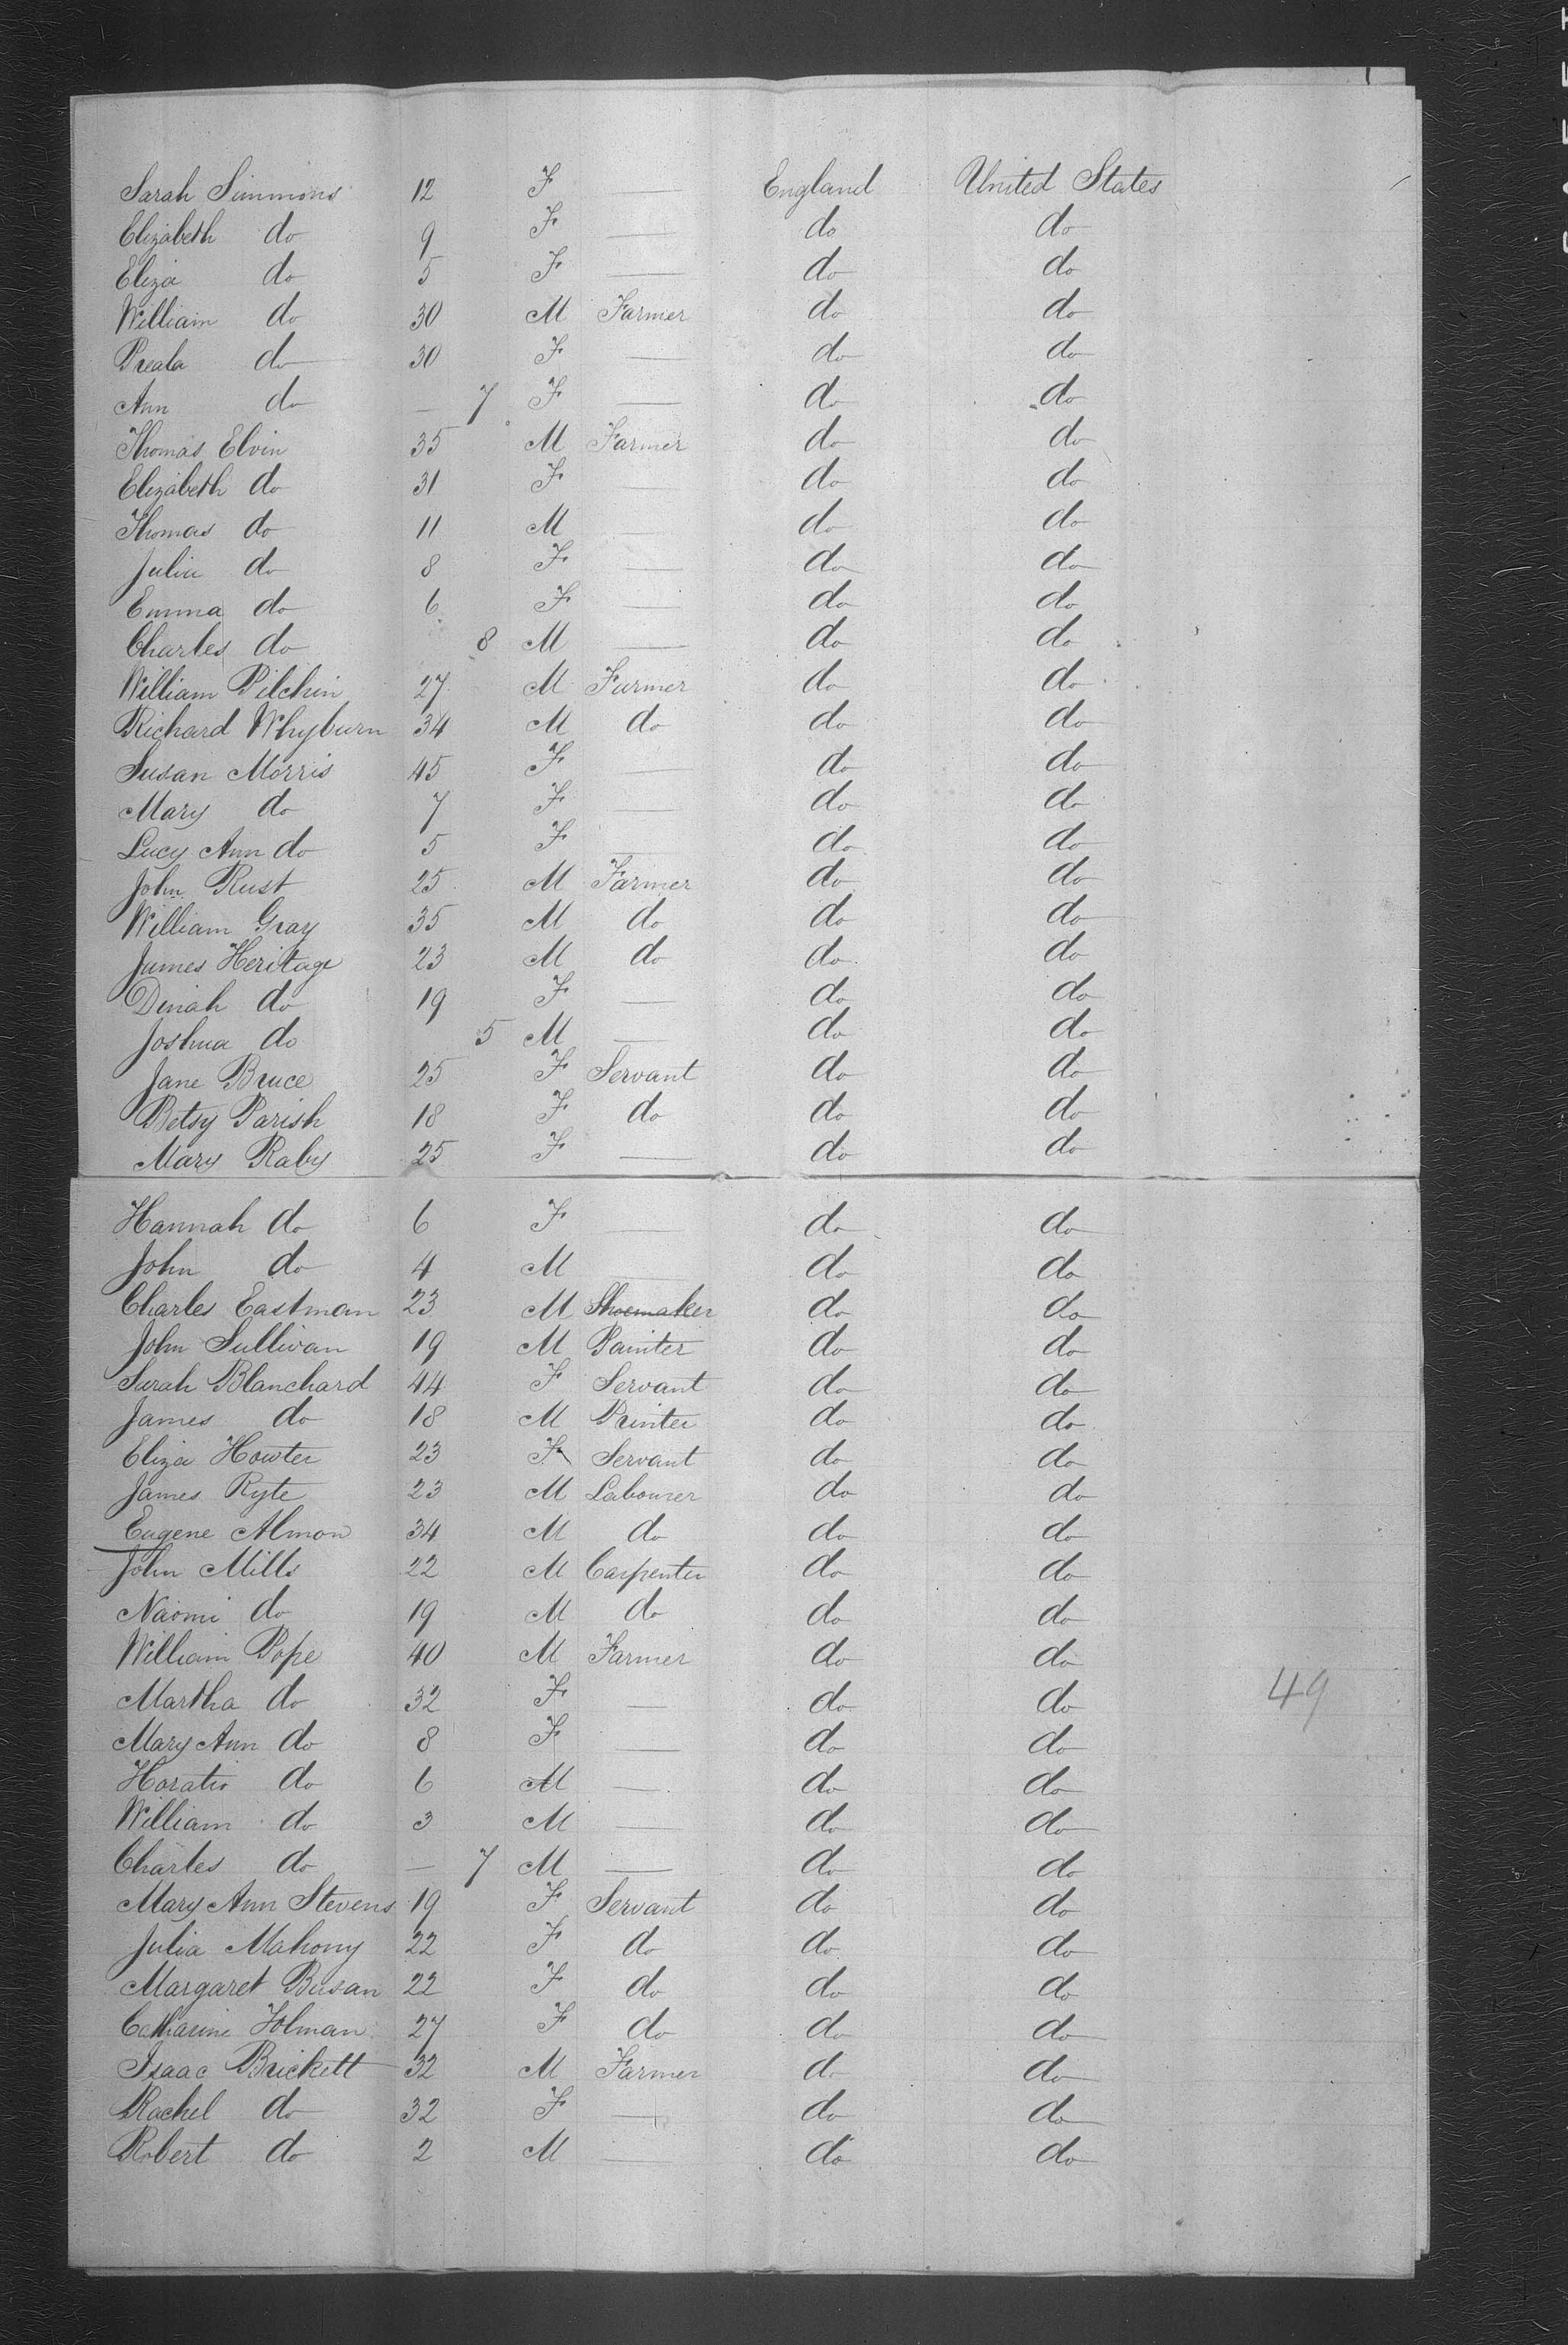 Sarah Simmons 12 F — England United States
Elizabeth do 9 F — do do
Eliza do 5 F — do do
William do 30 M Farmer do do
do 30 F — do do
Ann do — 7 F — do do
Thomas Elvin 35 M Farmer do do
Elizabeth do 31 F — do do
Thomas do 11 M — do do
Julia do 8 F — do do
Emma do 6 F — do do
Charles do 8 M — do do
William Pilchin 27 M Farmer do do
Richard Whyburn 34 M do do do
Susan Morris 45 F — do do
Mary do 7 F — do do
Lucy Ann do 5 F — do do
John Rust 25 M Farmer do do
William Gray 35 M do do do
James Heritage 23 M do do do
Dinah do 19 F — do do
Joshua do 5 M — do do
Jane Bruce 25 F Servant do do
Betsy Parish 18 F do do do
Mary Raby 25 F — do do
Hannah do 6 F — do do
John do 4 M — do do
Charles Eastman 23 M Shoemaker do do
John Sullivan 19 M Painter do do
Sarah Blanchard 44 F Servant do do
James do 18 M Printer do do
Eliza Howter 23 F Servant do do
James Ryte 23 M Labourer do do
Eugene Almon 34 M do do do
John Mills 22 M Carpenter do do
Naomi do 19 M do do do
William Pope 40 M Farmer do do
Martha do 32 F — do do 49
Mary Ann do 8 F — do do
Horatio do 6 M — do do
William do 3 M — do do
Charles do — 7 M — do do
Mary Ann Stevens 19 F Servant do do
Julia Mahony 22 F do do do
Margaret 22 F do do do
Catharine Holman 27 F do do do
Isaac Brickett 32 M Farmer do do
Rachel do 32 F — do do
Robert do 2 M — do do